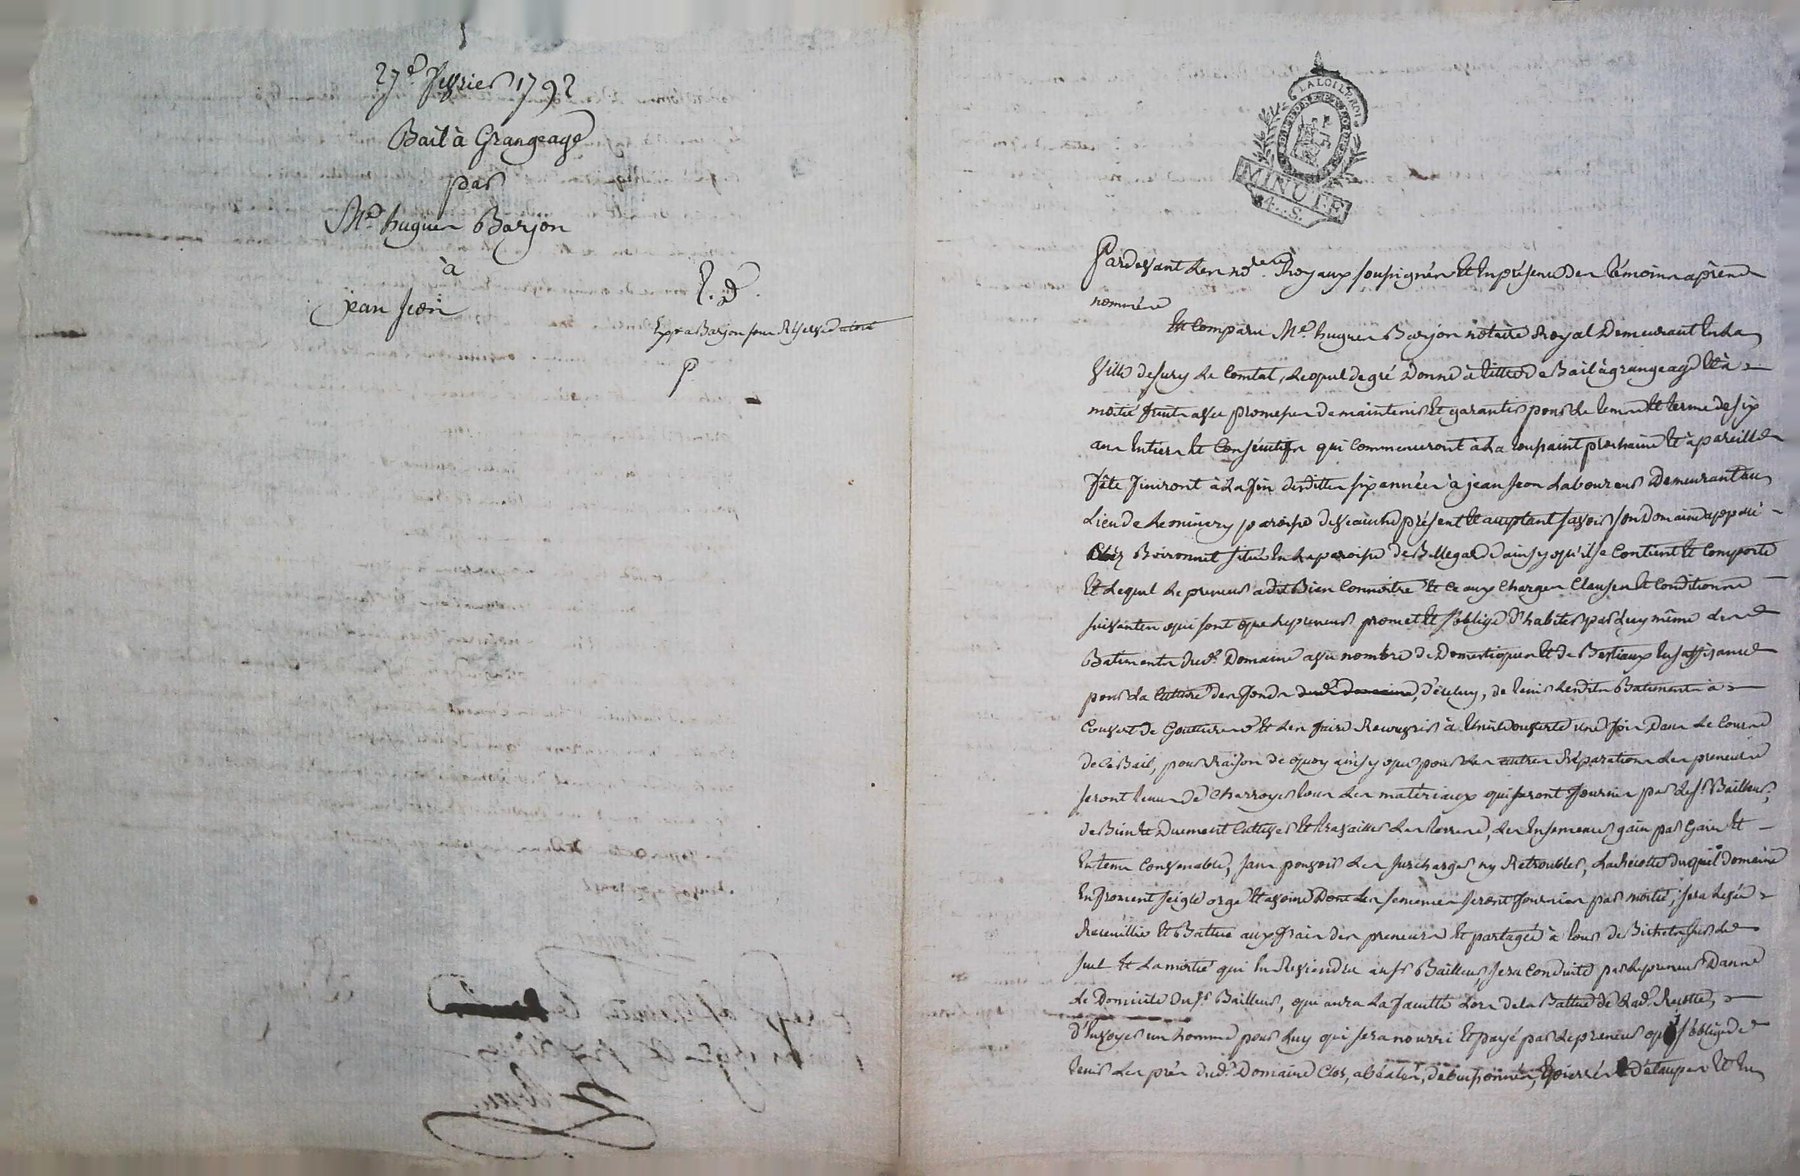 27e. fevrier 1792
Bail à Grangeage
par
Me. hugues Barjon
à
jean jeon
Exp. a Barjon pour
LA LOI LE ROI
MINUTE
4. S.
Pardevant les nores. Royaux soussignés et en présence des témoins après
nommés
Est comparu Me. hugues Barjon notaire Royal demeurant en la
Ville de sury le comtal, lequel de gré donne à tittre de Bail à grangeage et à
moitié fruit avec promesse de maintenir et garantir pour le temps et terme de six
ans entiers et consécutifs qui commenceront à la toussaint prochaine et à pareille
fête finiront à la fin desdittes six années à jean jeon laboureur demeurant au
lieu de paroisse de veauche présent et acceptant savoir son domaine appellé
chez Boironnet situé en la paroisse de Bellegarde ainsy qu'il se contient et comporte
et lequel le preneur a dit bien connoitre et ce aux charges clauses et conditions
suivantes qui sont que le preneur promet et s'oblige d'habiter par luy même les
Batiments dud. Domaine avec nombre de domestiques et de Bestiaux en suffisance
pour la culture des fonds dud. domaine d'iceluy, de tenir lesdits Batiments à
couvert de gouttieres et les faire recouvrir à thuile ouverte une fois dans le cours
de ce Bail, pour raison de quoy ainsy que pour les autres réparations les preneurs
seront tenus de charroyer tous les matériaux qui seront fournis par le sr. Bailleur,
de bien et duement cultiver et travailler les terres, les ensemencer gain par gain et
en tems convenable, sans pouvoir les surcharger ny retroubler, la récolte duquel domaine
en froment seigle orge et avoine dont les semences seront fournies par moitié, sera levée
Recueillie et Battue aux frais des preneurs et partagée à tour de Bichet sur le
suel et la moitié qui en reviendra au sr. Bailleur sera conduite par le preneur dans
le domicile du sr. Bailleur, qui aura la faculté lors de la Battue de lad. Recolte,
d'envoyer un homme pour luy qui sera nourri et payé par le preneur qui s'oblige de
tenir les prés dud. Domaine clos, abéalés, debuissonnés, épierrés d'étauper et en